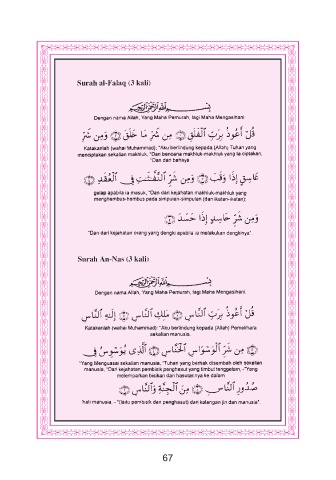 Surah al-Falaq (3 kali)
بِسْمِ اللَّهِ الرَّحْمَٰنِ الرَّحِيمِ
Dengan nama Allah, Yang Maha Pemurah, lagi Maha Mengasihani
قُلْ أَعُوذُ بِرَبِّ الْفَلَقِ ۝ مِن شَرِّ مَا خَلَقَ ۝ وَمِن شَرِّ
Katakanlah (wahai Muhammad); "Aku berlindung kepada (Allah) Tuhan yang
menciptakan sekalian makhluk, "Dari bencana makhluk-makhluk yang Ia ciptakan,
"Dan dari bahaya
غَاسِقٍ إِذَا وَقَبَ ۝ وَمِن شَرِّ النَّفَّاثَاتِ فِي الْعُقَدِ ۝
gelap apabila ia masuk, "Dan dari kejahatan makhluk-makhluk yang
menghembus-hembus pada simpulan-simpulan (dan ikatan-ikatan);
وَمِن شَرِّ حَاسِدٍ إِذَا حَسَدَ ۝
"Dan dari kejahatan orang yang dengki apabila ia melakukan dengkinya".
Surah An-Nas (3 kali)
بِسْمِ اللَّهِ الرَّحْمَٰنِ الرَّحِيمِ
Dengan nama Allah, Yang Maha Pemurah, lagi Maha Mengasihani.
قُلْ أَعُوذُ بِرَبِّ النَّاسِ ۝ مَلِكِ النَّاسِ ۝ إِلَٰهِ النَّاسِ
Katakanlah (wahai Muhammad); "Aku berlindung kepada (Allah) Pemelihara
sekalian manusia.
۝ مِن شَرِّ الْوَسْوَاسِ الْخَنَّاسِ ۝ الَّذِي يُوَسْوِسُ فِي
"Yang Menguasai sekalian manusia, "Tuhan yang berhak disembah oleh sekalian
manusia, "Dari kejahatan pembisik penghasut yang timbul tenggelam, -"Yang
melemparkan bisikan dan hasutannya ke dalam
صُدُورِ النَّاسِ ۝ مِنَ الْجِنَّةِ وَالنَّاسِ ۝
hati manusia, - "(Iaitu pembisik dan penghasut) dari kalangan jin dan manusia".
67